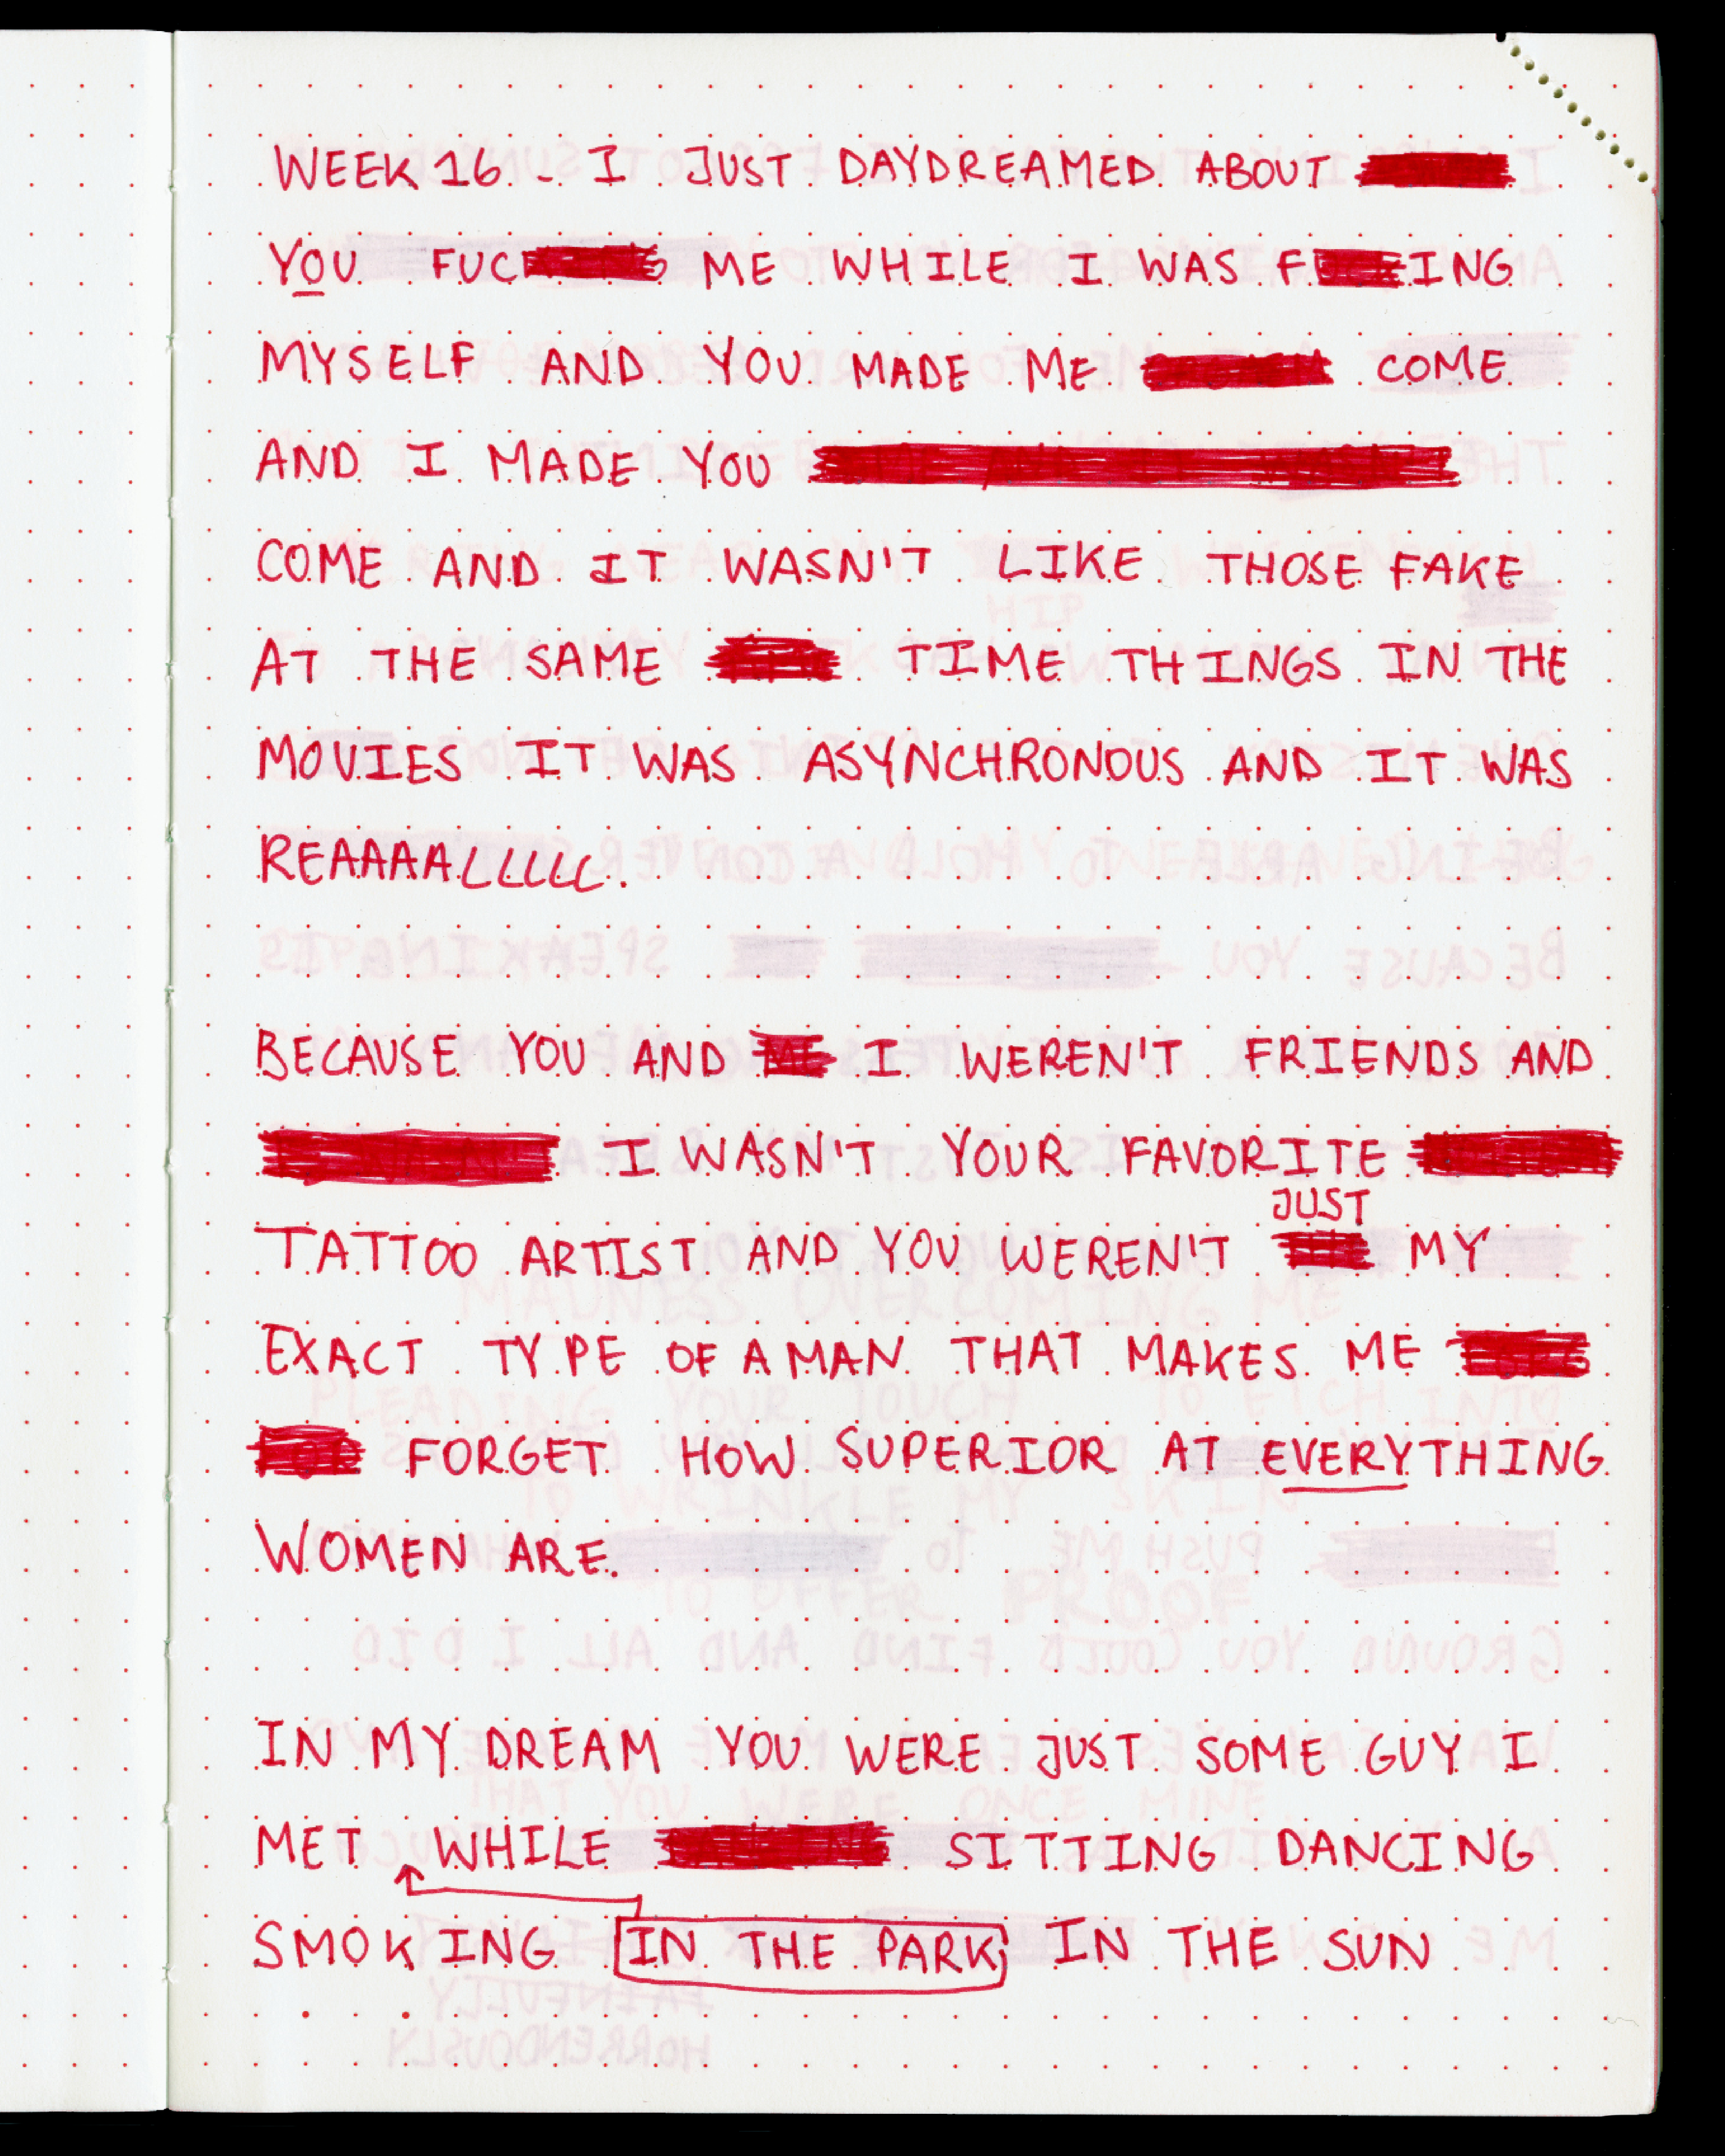 WEEK 16 - I JUST DAYDREAMED ABOUT
YOU FUC ME WHILE I WAS F ING
MYSELF AND YOU MADE ME COME
AND I MADE YOU
COME AND IT WASN'T LIKE THOSE FAKE
AT THE SAME TIME THINGS IN THE
MOVIES IT WAS ASYNCHRONOUS AND IT WAS
REAAAALLLLL.
BECAUSE YOU AND ME I WEREN'T FRIENDS AND
I WASN'T YOUR FAVORITE
JUST
TATTOO ARTIST AND YOU WEREN'T MY
EXACT TYPE OF A MAN THAT MAKES ME
FORGET HOW SUPERIOR AT EVERYTHING
WOMEN ARE.
IN MY DREAM YOU WERE JUST SOME GUY I
MET WHILE SITTING DANCING
SMOKING IN THE PARK IN THE SUN